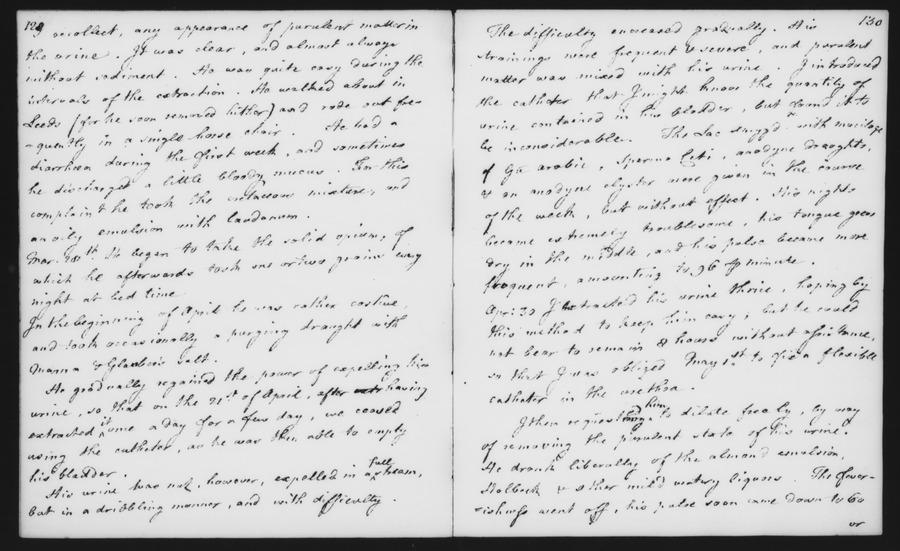 129
recollect, any appearance of purulent matter in
the urine. It was clear, and almost always
without sediment. He was quite easy during the
intervals of the extraction. He walked about in
Leeds (for he soon removed hither) and rode out fre
-quently in a single horse chair. He had a
diarrhœa during the first week, and sometimes
he discharged a little bloody mucus. For this
complaint he took the cretaceous mixture, and
an oily emulsion with laudanum.
Mar. th. He began to take the solid opium, of
which he afterwards took one or two grains every
night at bed time
In the beginning of April he was rather costive,
and took occasionally a purging draught with
Manna & Glauber's salt.
He gradually regained the power of expelling his
urine, so that on the 21st of April, after having
extracted it once a day for a few days, we ceased
using the catheter, as he was then able to empty
his bladder.
His urine was not, however, expelled in a full stream,
but in a dribbling manner, and with difficulty.
130
The difficulty increased gradually. His
strainings were frequent & severe, and purulent
matter was mixed with his urine. I introduced
the catheter that I might know the quantity of
urine contained in his bladder, but found it to
be inconsiderable. The Lac with mucilage
of Gum arabic, Sperma Ceti, anodyne draughts,
& an anodyne clyster were given in the course
of the week, but without effect. His nights
became extremely troublesome, his tongue grew
dry in the middle, and his pulse became more
frequent, amounting to 96 P minute.
Apr: 30 I extracted his urine thrice, hoping by
this method to keep him easy; but he could
not bear to remain 8 hours without assistance,
so that I was obliged May 1st to fix a flexible
catheter in the urethra.
I then requested him to dilute freely, by way
of removing the purulent state of his urine.
He drank liberally of the almond emulsion,
Holbeck & other mild watery liquors. The fever-
-ishness went off, his pulse soon came down to 60
or